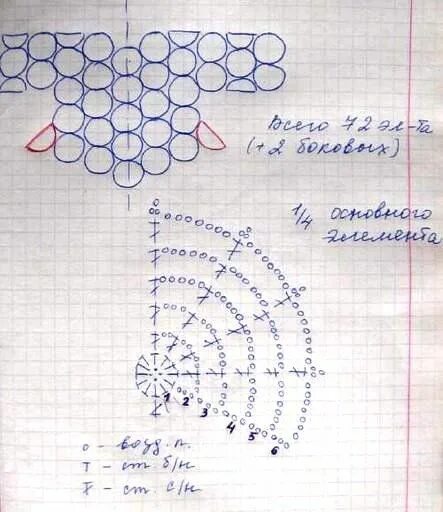 Всего 72 эл-та
(+ 2 боковых)
1/4 основного
элемента
1 2 3 4 5 6
о - возд. п.
т - ст. б/н
ŧ - ст. с/н